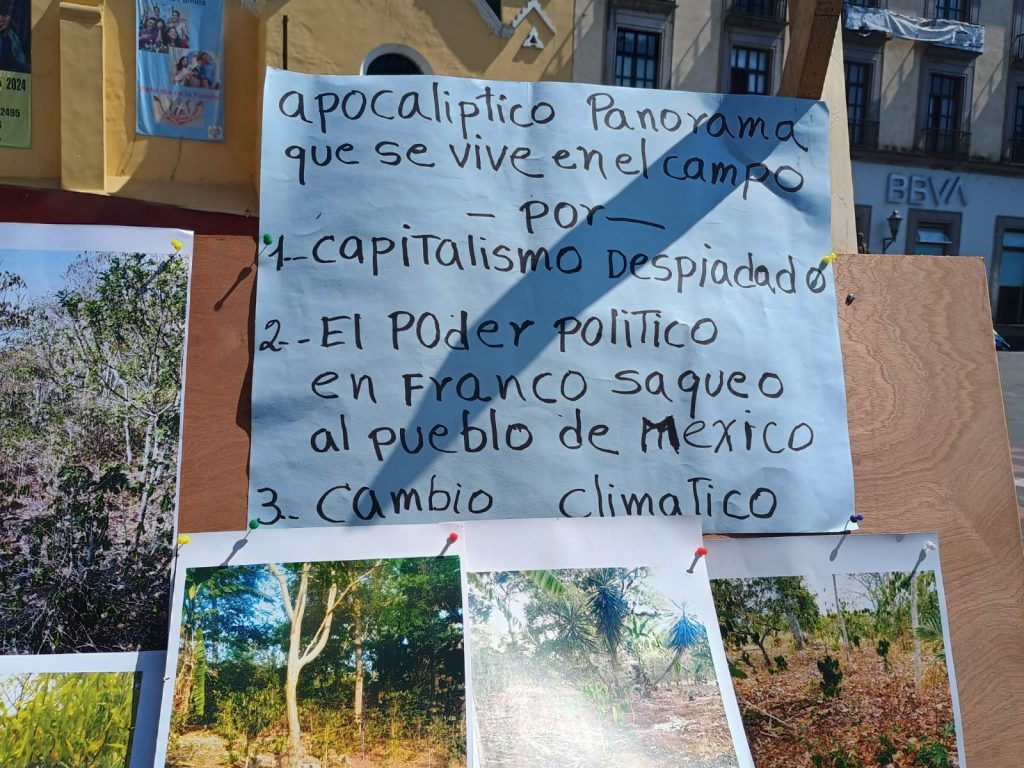 2024
2495
apocaliptico Panorama
que se vive en el campo
— por —
1.- capitalismo Despiadado
2.- El Poder politico
en Franco saqueo
al pueblo de Mexico
3.- cambio climatico
BBVA